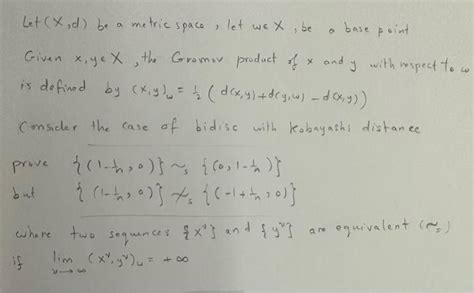 Let (X,d) be a metric space, let w∈X, be a base point
Given x,y∈X, the Gromov product of x and y with respect to w
is defined by (x,y)_w = 1/2 (d(x,y)+d(y,w) - d(x,y))
Consider the case of bidisc with Kobayashi distance
prove {(1-1/n, 0)} ~_s {(0, 1-1/n)}
but {(1-1/n, 0)} ≁_s {(-1+1/n, 0)}
where two sequences {x^ν} and {y^ν} are equivalent (~_s)
if lim_{ν→∞} (x^ν, y^ν)_w = +∞